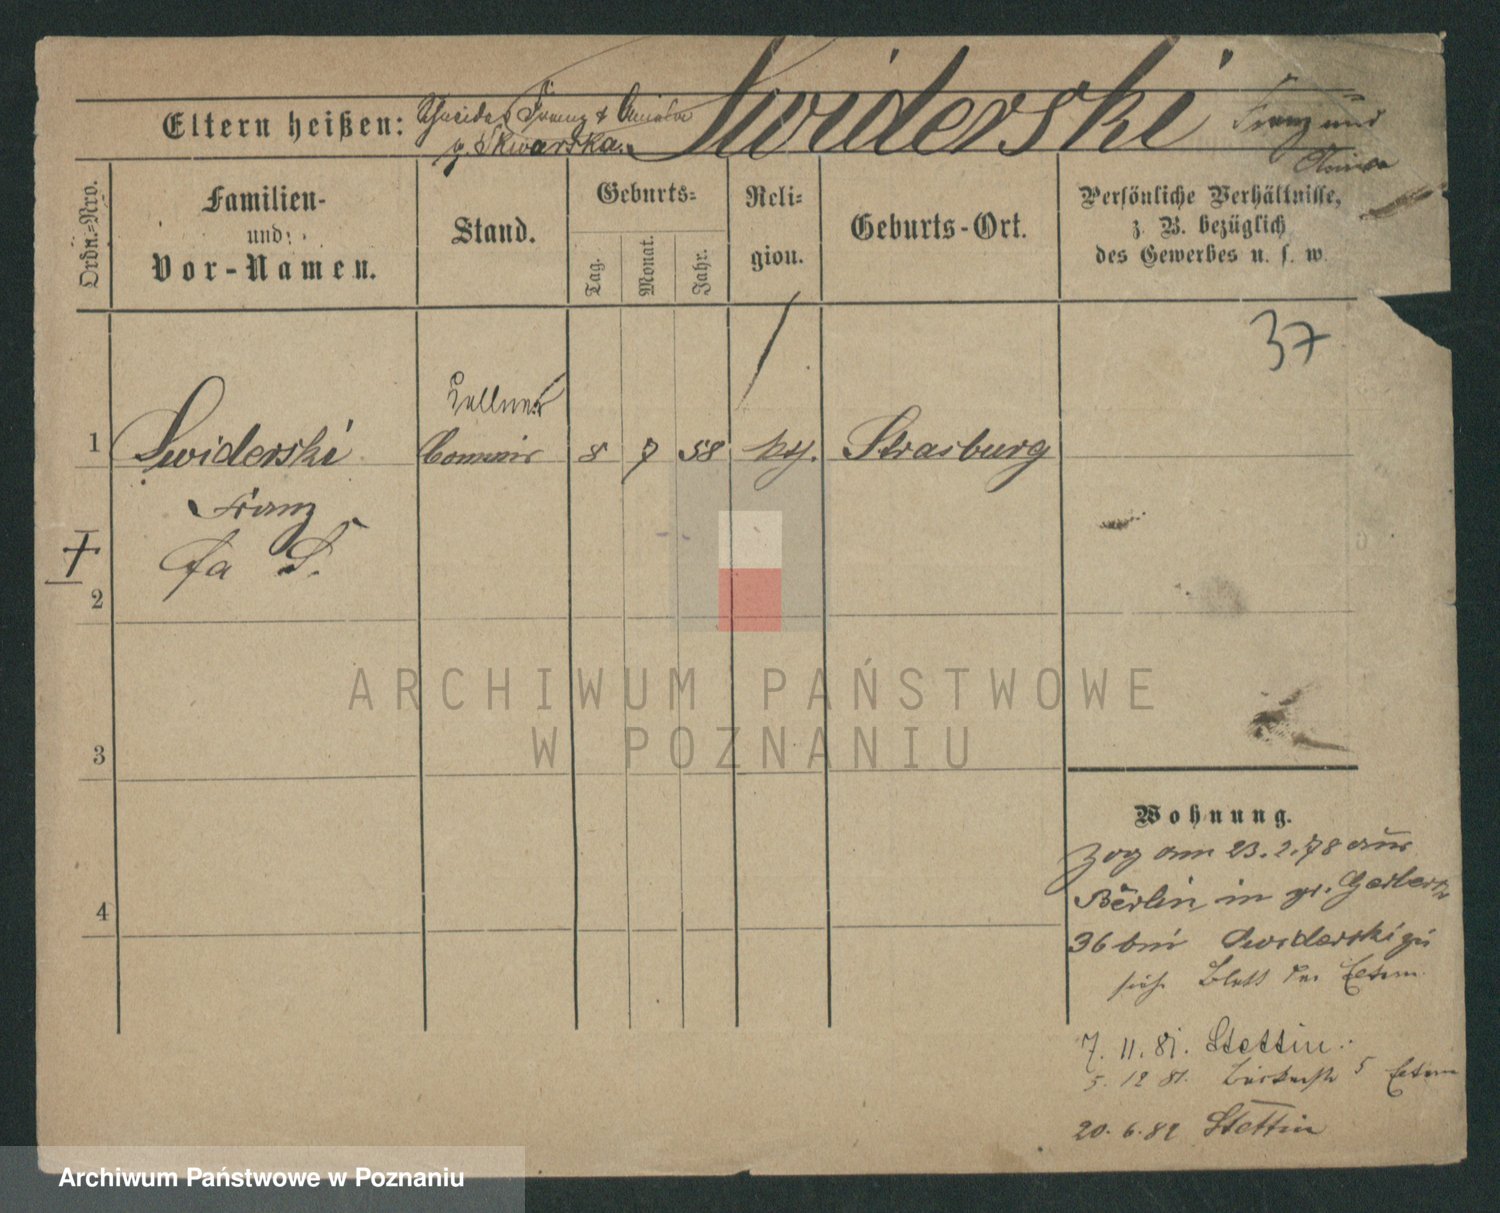 Eltern heißen: Schneider Franz & Amalie
g. Skwarska.
Swiderski
Franz und
Ordn.=Nro.
Familien-
und
Vor-Namen.
Stand.
Geburts=
Tag.
Monat.
Jahr.
Reli=
gion.
Geburts-Ort.
Persönliche Verhältnisse,
z. B. bezüglich
des Gewerbes u. s. w.
37
Kellner
1 Swiderski Commis 8 7 58 kth. Strasburg
Franz
fa S.
2
3
4
Wohnung.
Zog am 23.2.78 aus
Berlin in gr. Gerberstr
36 bei Swiderski
siehe Blatt der Eltern
7. 11. 81. Stettin.
5. 12 81. 5 Eltern
20. 6. 82 Stettin
ARCHIWUM PAŃSTWOWE
W POZNANIU
Archiwum Państwowe w Poznaniu